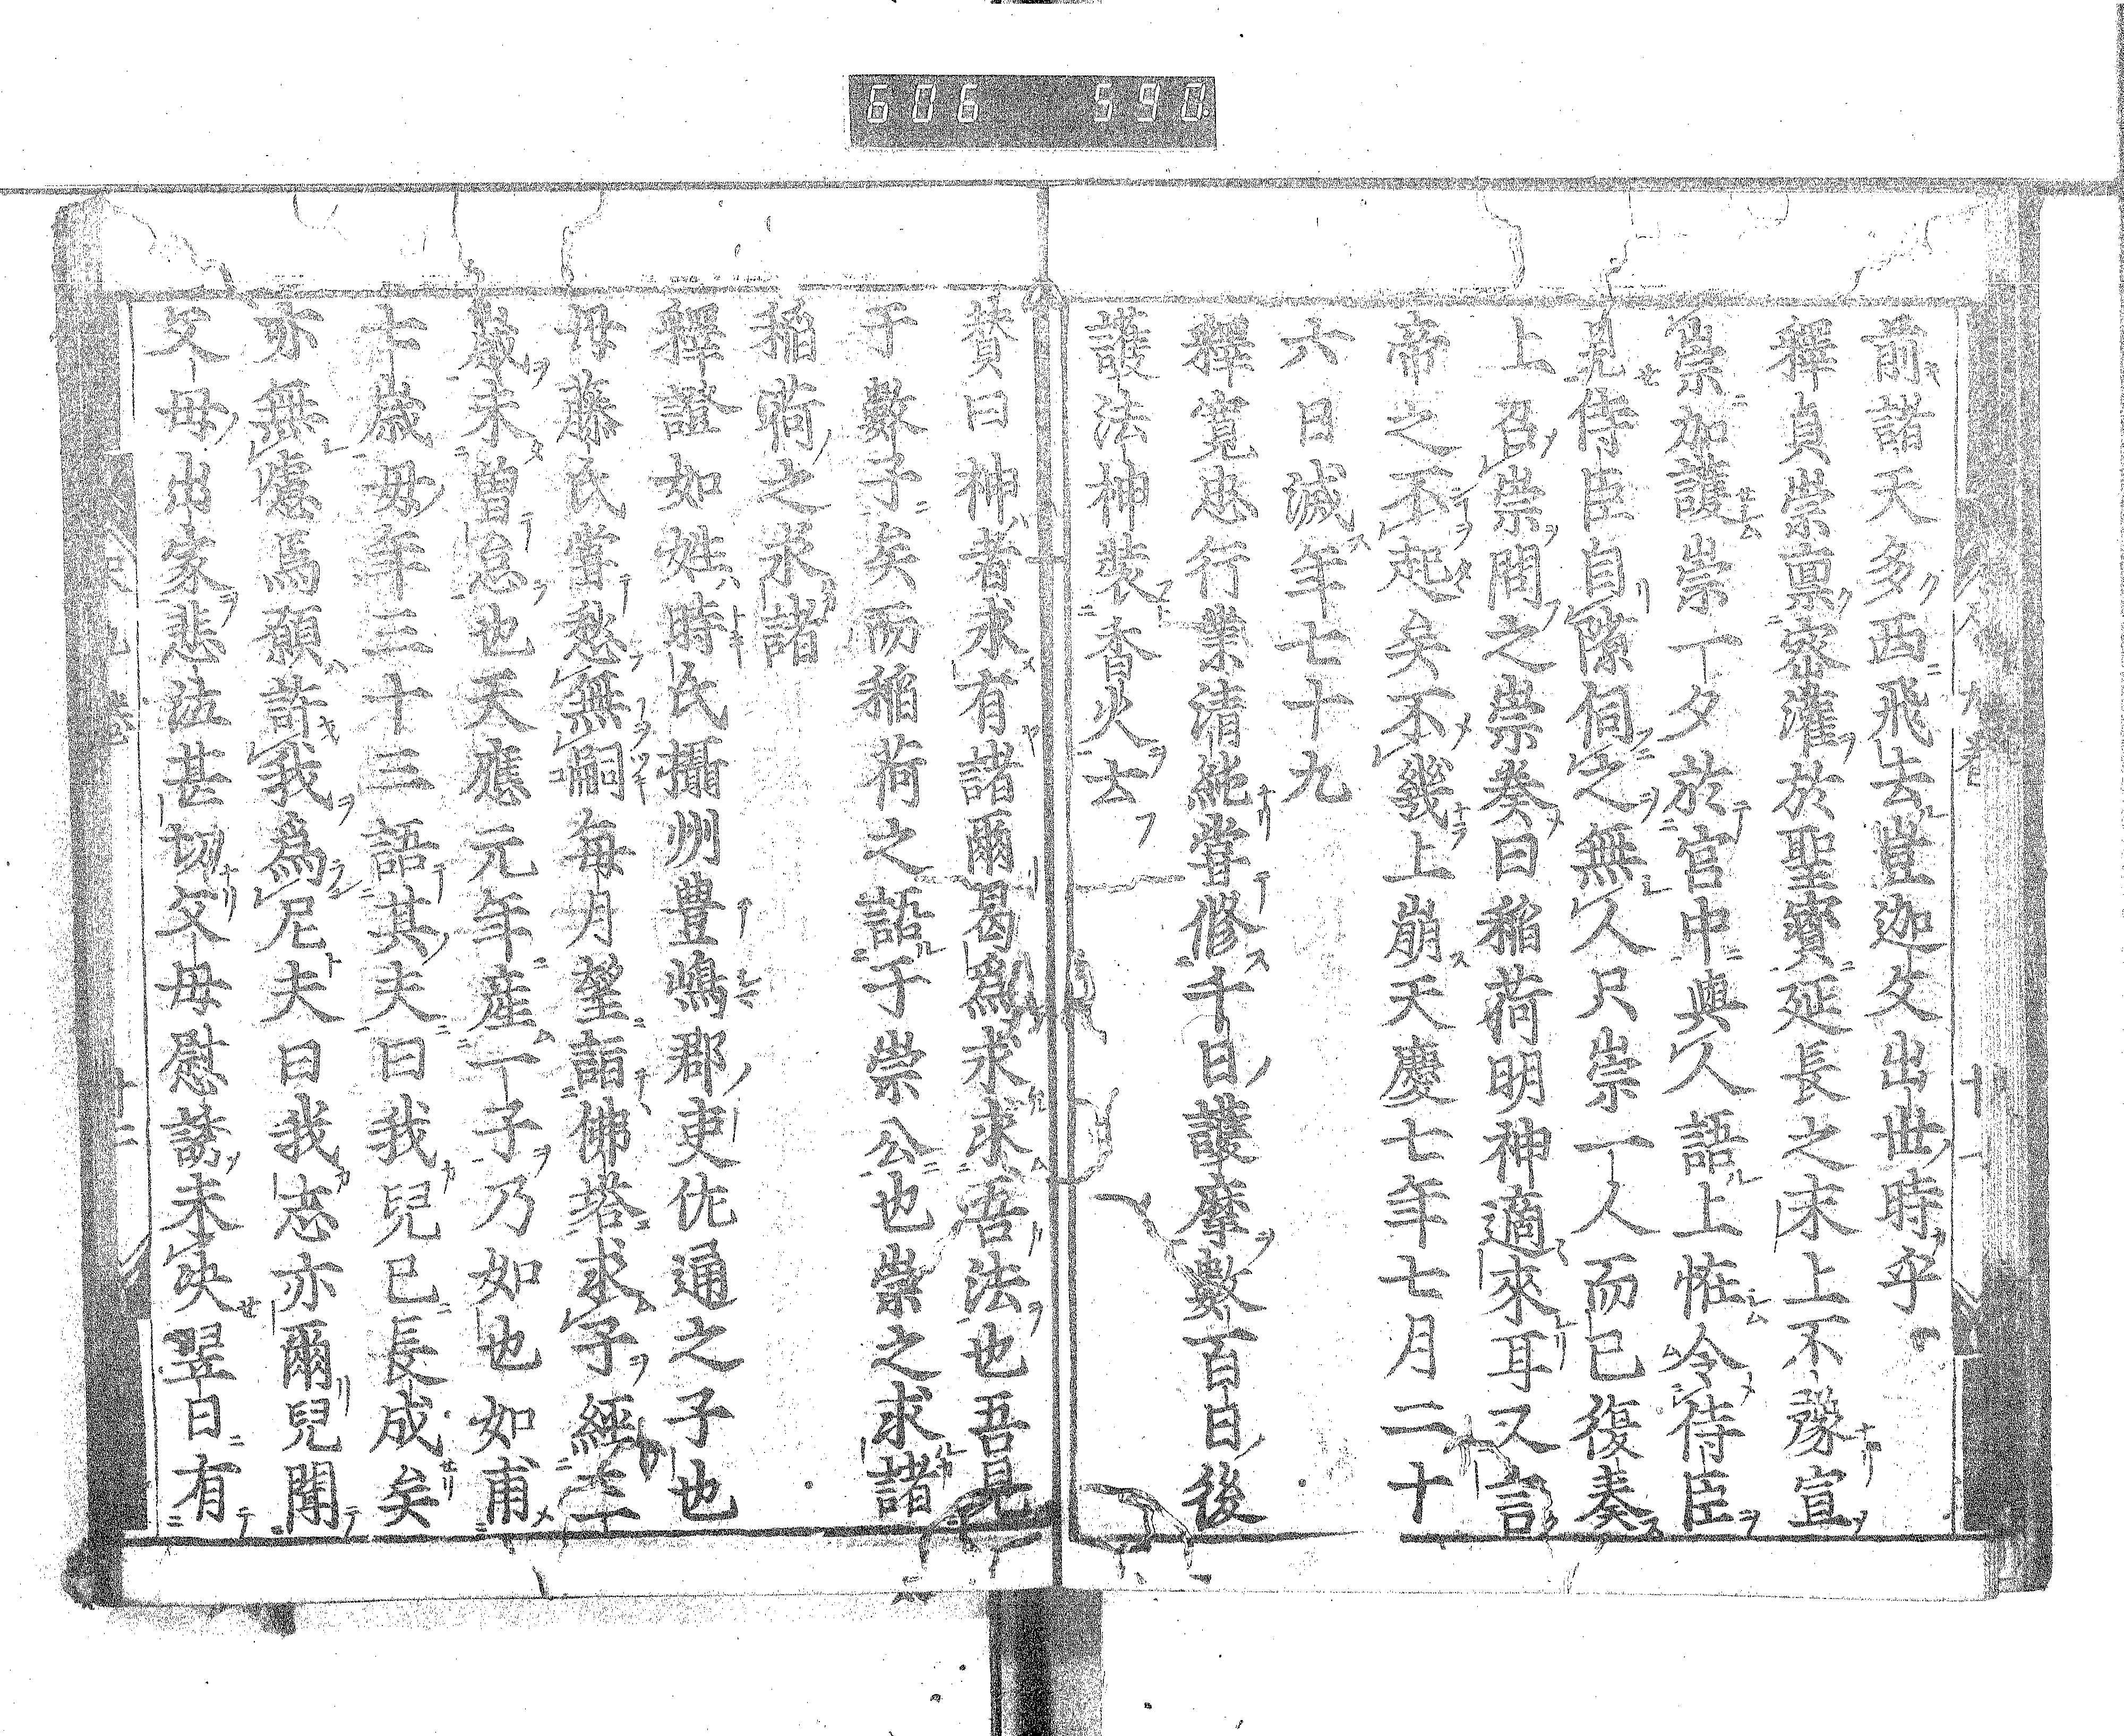 606 590
前諸天多西飛去豈迦文出世時乎
釋貞崇禀密灌於聖寶延長之末上不豫宣
崇加護崇一夕於宮中與人語上恠令侍臣
見侍臣自隙伺之無人只崇一人而已復奏
上召崇問之崇奏曰稲荷明神適來耳又言
帝之不起矣不幾上崩天慶七年七月二十
六日滅年七十九
釋寬忠行業清純嘗修千日護摩數百日後
護法神裝香火去
賛曰神者求有諸爾曷爲求求吾法也吾見
于數子矣而稲荷之語于崇公也崇之求諸
稲荷之求諸
釋證如姓時氏攝州豊嶋郡吏佐通之子也
母藤氏嘗愁無嗣每月望詣佛塔求子經三
歲未曽怠也天應元年產一子乃如也如甫
十歲母年三十三語其夫曰我兒已長成矣
亦無慮焉願許我爲尼夫曰我志亦爾兒聞
父母出家悲泣甚切父母慰誘未央翌日有